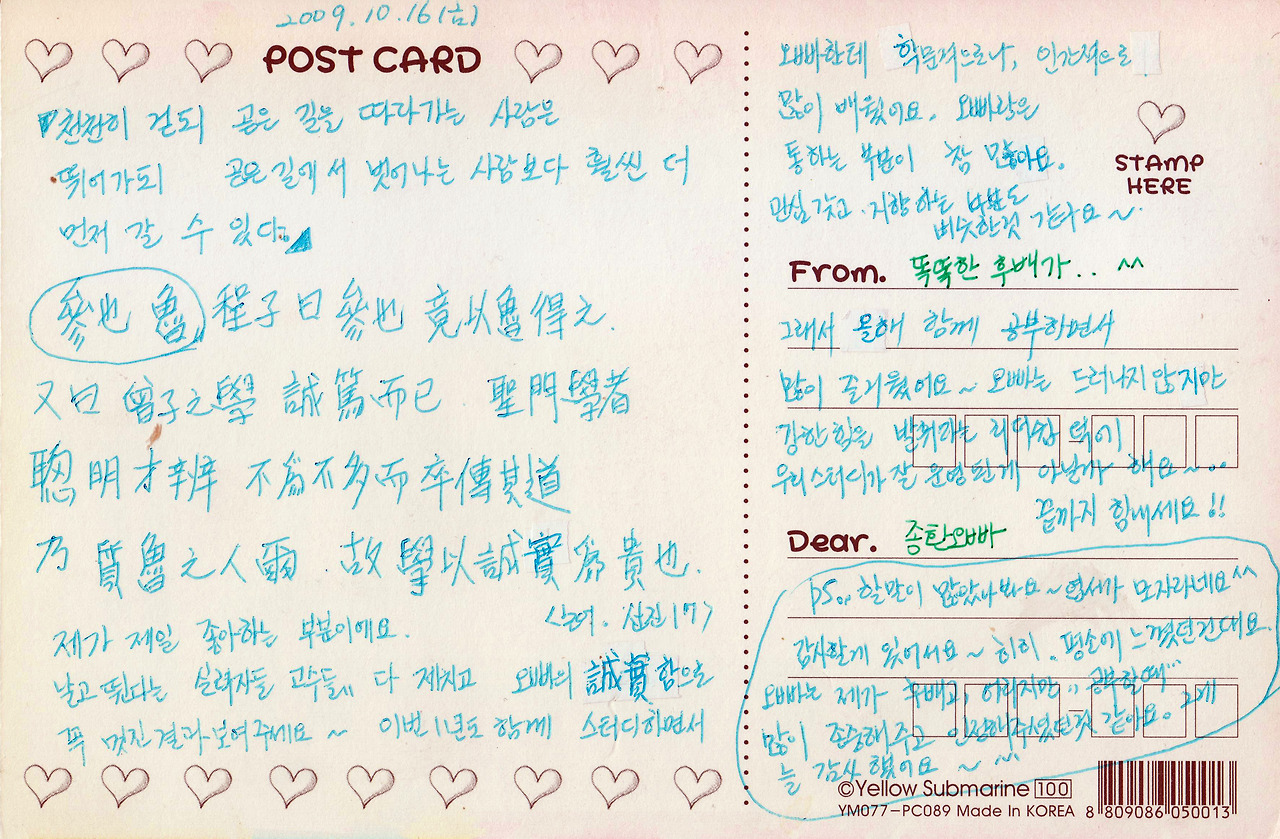 2009.10.16(금)
POST CARD
천천히 걷되 곧은 길을 따라가는 사람은
뛰어가되 곧은길에서 벗어나는 사람보다 훨씬 더
먼저 갈 수 있다.
參也 魯 程子曰 參也 竟以魯得之.
又曰 曾子之學 誠篤而已 聖門學者
聰明才辨 不爲不多而卒傳其道
乃 質魯之人爾. 故學以誠實爲貴也.
<논어. 선진17>
제가 제일 좋아하는 부분이에요.
날고 뛴다는 실력자들 고수들.. 다 제치고 오빠의 誠實함으로
꼭 멋진결과보여주세요~ 이번 1년도 함께 스터디하면서
오빠한테 학문적으로나, 인간적으로
많이 배웠어요. 오빠랑은
통하는 부분이 참 많아요.
관심갖고 지향하는 부분도
비슷한것 같아요~
STAMP
HERE
From. 똑똑한 후배가.. ^^
그래서 올해 함께 공부하면서
많이 즐거웠어요~ 오빠는 드러나지않지만
강한힘을 발휘하는 리더십 덕에
우리스터디가 잘 운영된게 아닐까 해요~..
끝까지 힘내세요!!
Dear. 종탄오빠
PS.. 할말이 많았나봐요~ 엽서가 모자라네요^^
감사한게 있어서요~ 히히. 평소에 느꼈던건데요.
오빠는 제가 후배고, 어리지만.. 공부할때...
많이 존중해주고 인정해주셨던것 같아요. 그게
늘 감사했어요~ ^^
©Yellow Submarine 100
YM077-PC089 Made In KOREA
8 809086 050013